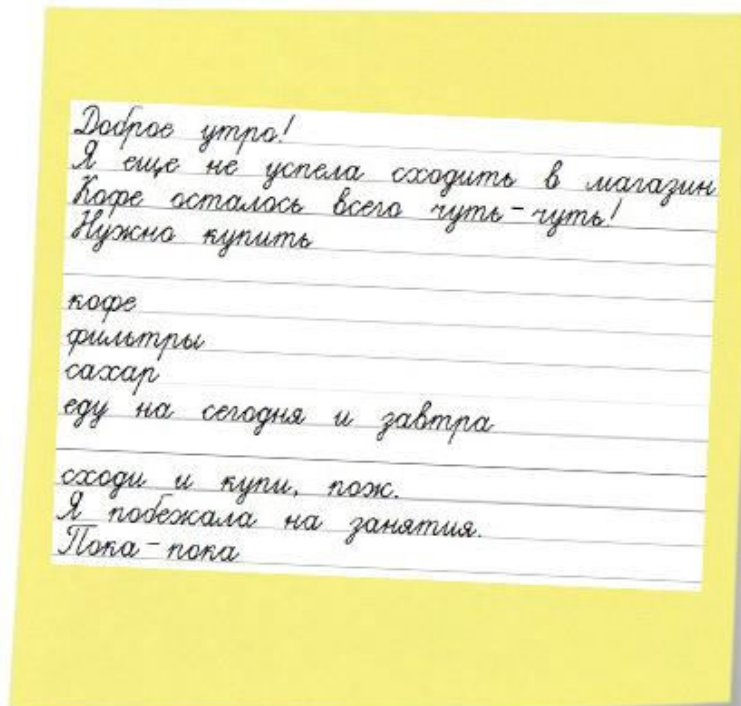 Доброе утро!
Я еще не успела сходить в магазин
Кофе осталось всего чуть-чуть!
Нужно купить
кофе
фильтры
сахар
еду на сегодня и завтра
сходи и купи, пож.
Я побежала на занятия.
Пока-пока